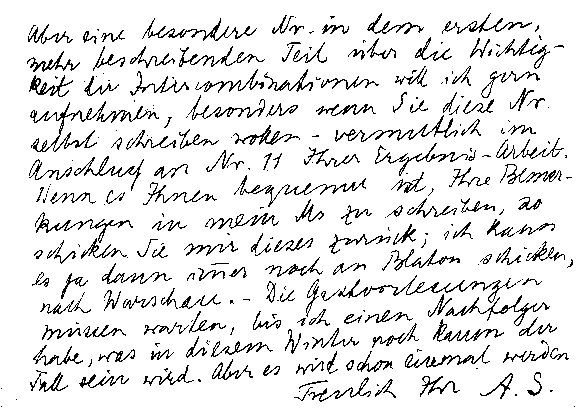 Aber eine besondere Nr. in dem ersten,
mehr beschreibenden Teil über die Wichtig-
keit der Intercombinationen will ich gern
aufnehmen, besonders wenn Sie diese Nr.
selbst schreiben wollen - vermutlich im
Anschluß an Nr. 11 Ihrer Ergebnis-Arbeit.
Wenn es Ihnen bequemer ist, Ihre Bemer-
kungen in mein Ms zu schreiben, so
schicken Sie mir dieses zurück; ich kann
es ja dann immer noch an Blaton schicken,
nach Warschau. - Die Gastvorlesungen
müssen warten, bis ich einen Nachfolger
habe, was in diesem Winter noch kaum der
Fall sein wird. Aber es wird schon einmal werden
Freundlich Ihr A. S.